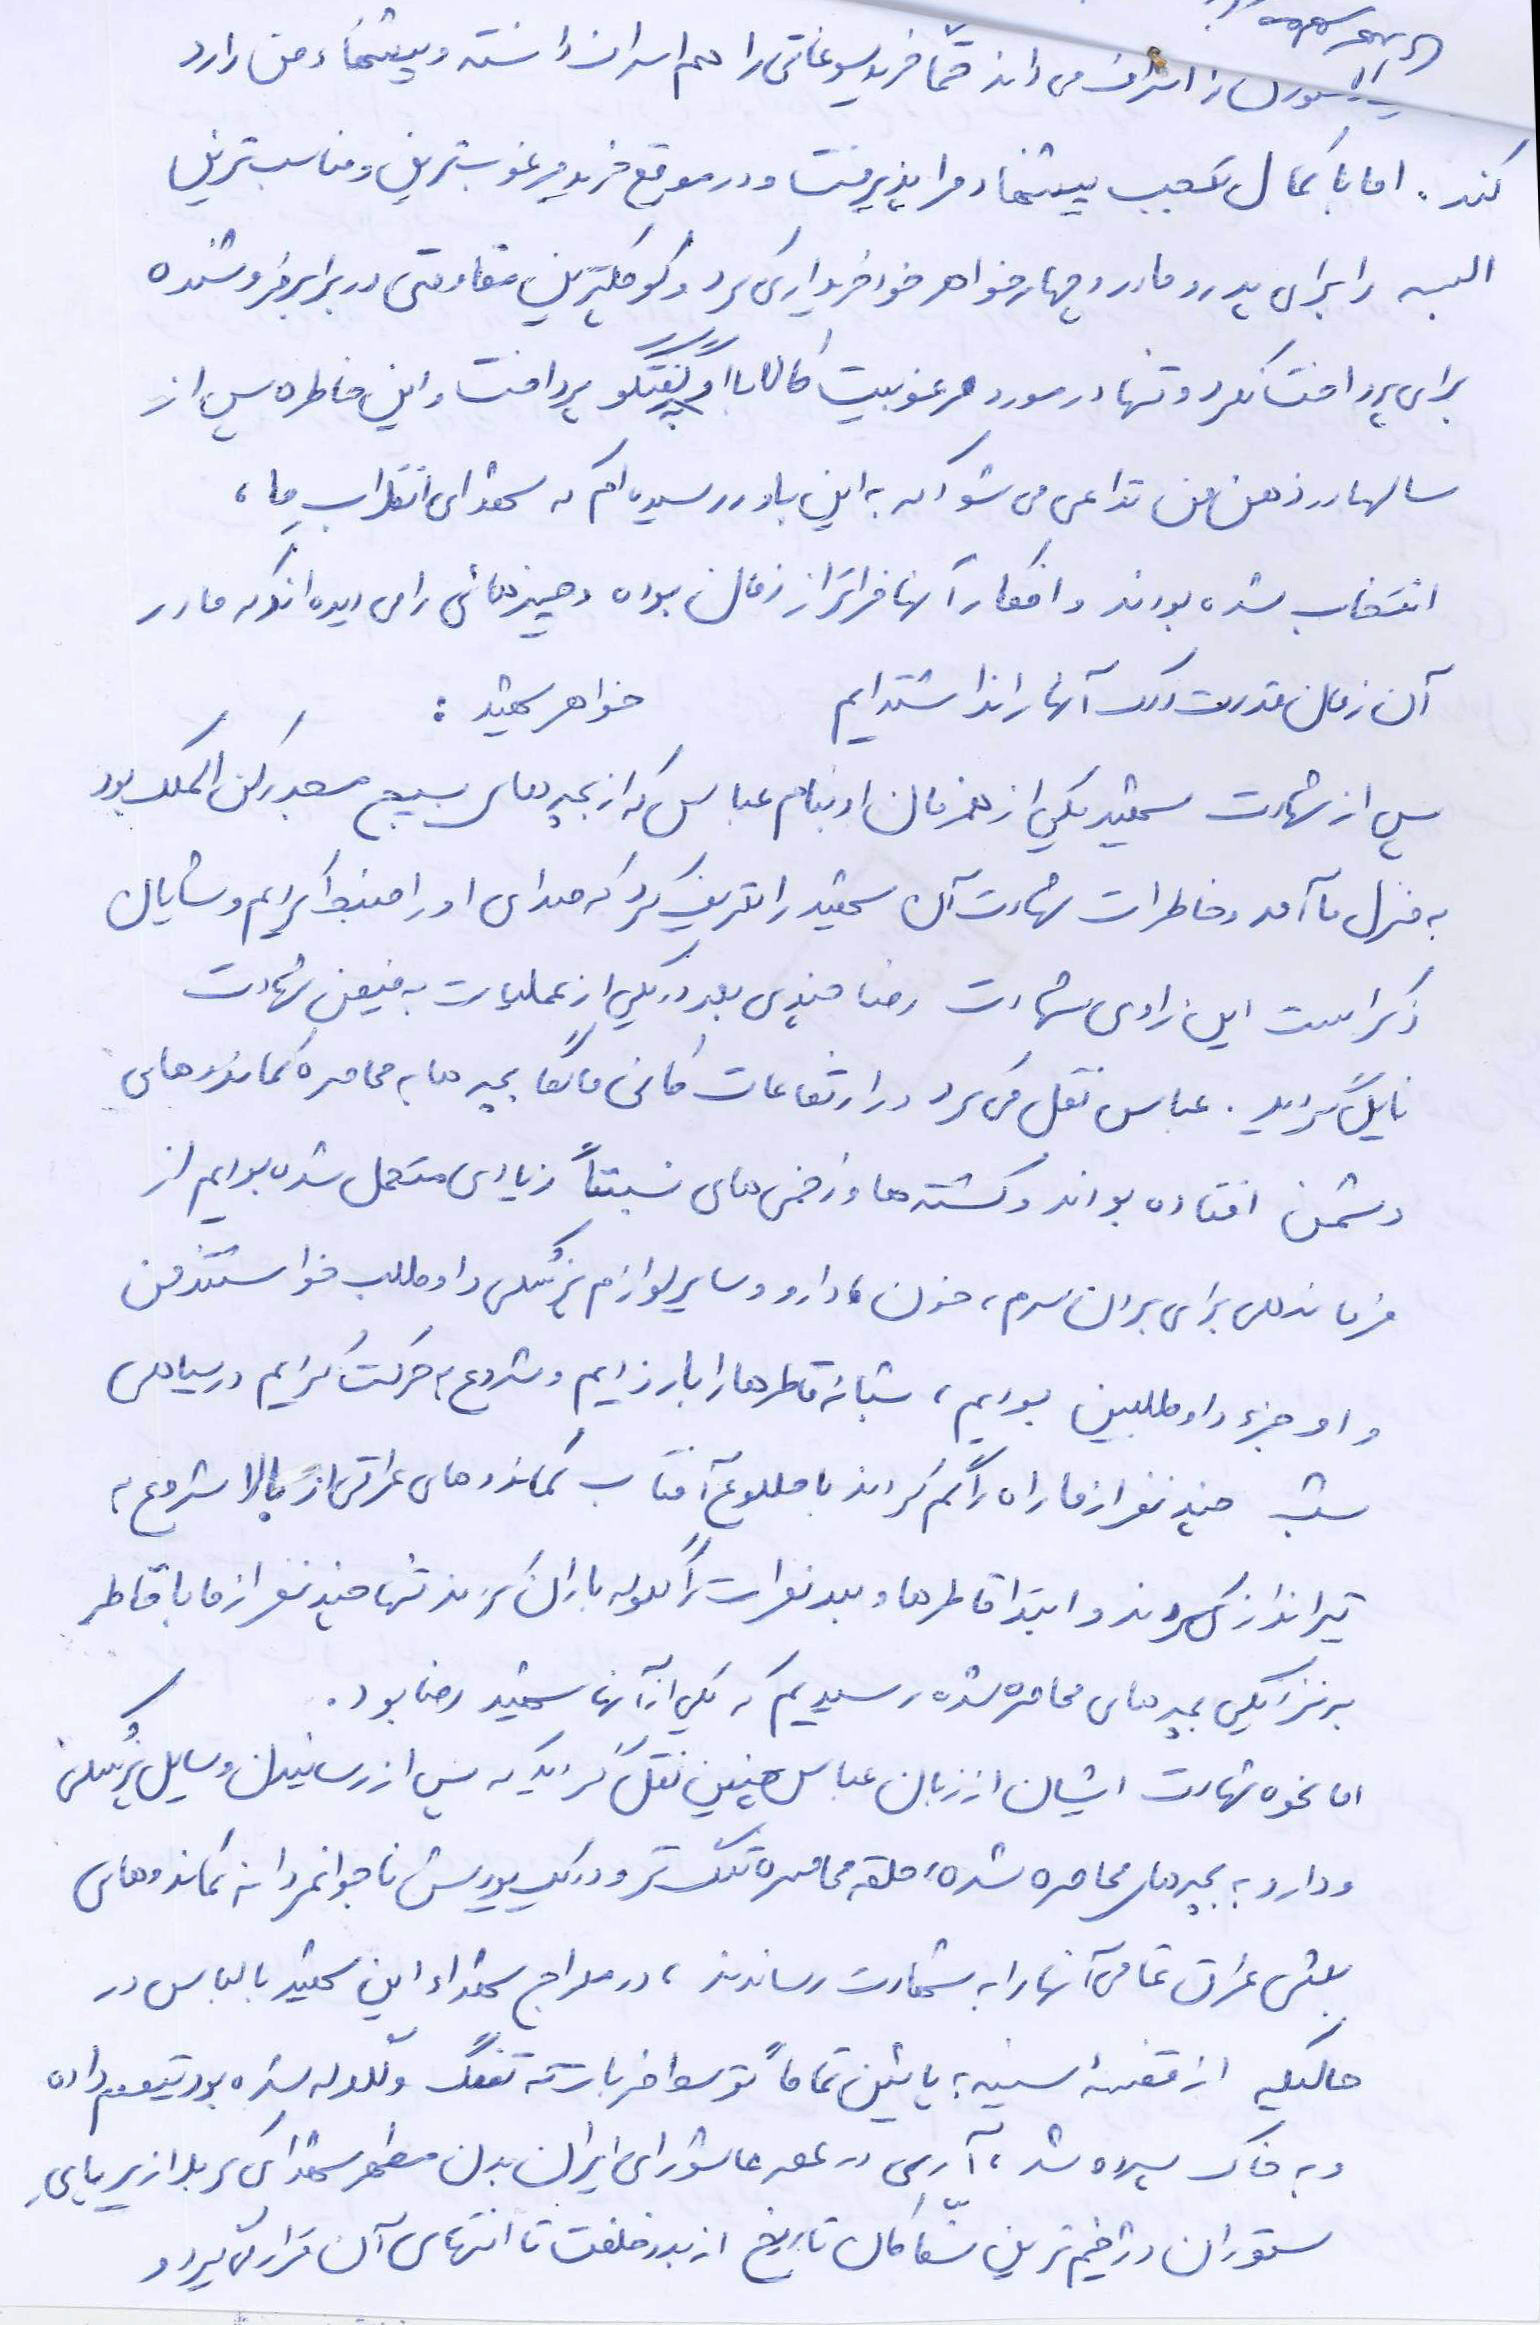 را اسراف می داند حتماً خرید سوغاتی را هم اسراف دانسته و پیشنهاد من را رد
کند. اما با کمال تعجب پیشنهاد مرا پذیرفت و در موقع خرید مرغوبترین و مناسب ترین
البسه را برای پدر و مادر و چهار خواهر خود خریداری کرد و کوچکترین مقاومتی در برابر فروشنده
برای پرداخت نکرد و تنها در مورد مرغوبیت کالا با او گفتگو پرداخت و این خاطره پس از
سالها در ذهن من تداعی می شود که به این باور رسیده ام که شهدای انقلاب ما،
انتخاب شده بودند و افکار آنها فراتر از زمان بوده و چیزهائی را می دیده اند که ما در
آن زمان قدرت درک آنها را نداشته ایم خواهر شهید:
پس از شهادت شهید یکی از همرزمان او بنام عباس که از بچه های بسیج مسجد رکن الملک بود
به منزل ما آمد و خاطرات شهادت آن شهید را تعریف کرد که صدای او را ضبط کردیم و شایان
ذکر است این راوی شهادت رضا چندی بعد در یکی از عملیات به فیض شهادت
نایل گردید. عباس نقل می کرد در ارتفاعات کانی مانگا بچه ها به محاصره کماندوهای
دشمن افتاده بودند و کشته ها و زخمی های نسبتاً زیادی متحمل شده بودیم از
فرماندهی برای بردن سرم، خون، دارو و سایر لوازم پزشکی داوطلب خواستند من
و او جزء داوطلبین بودیم، شبانه قاطرها را بار زدیم و شروع به حرکت کردیم در سیاهی
شب چند نفر از ما راه را گم کردند با طلوع آفتاب کماندوهای عراقی از بالا شروع به
تیراندازی کردند و ابتدا قاطرها و بعد نفرات را گلوله باران کردند تنها چند نفر از ما با قاطر
به نزدیکی بچه های محاصره شده رسیدیم که یکی از آنها شهید رضا بود.
اما نحوه شهادت ایشان از زبان عباس چنین نقل گردید که پس از رسانیدن وسایل پزشکی
و دارو به بچه های محاصره شده، حلقه محاصره تنگ تر و در یک یورش ناجوانمردانه کماندوهای
بعثی عراق تمامی آنها را به شهادت رساندند، در معراج شهداء این شهید با لباس در
حالیکه از قفسه سینه به پائین تماماً توسط ضربات ته تفنگ و گلوله شده بود تیمم داده
و به خاک سپرده شد، آری در عصر عاشورای ایران بدن مطهر شهدای کربلا زیر پای
ستوران دژخیم ترین سفاکان تاریخ از بدو خلقت تا انتهای آن قرار می گیرد و